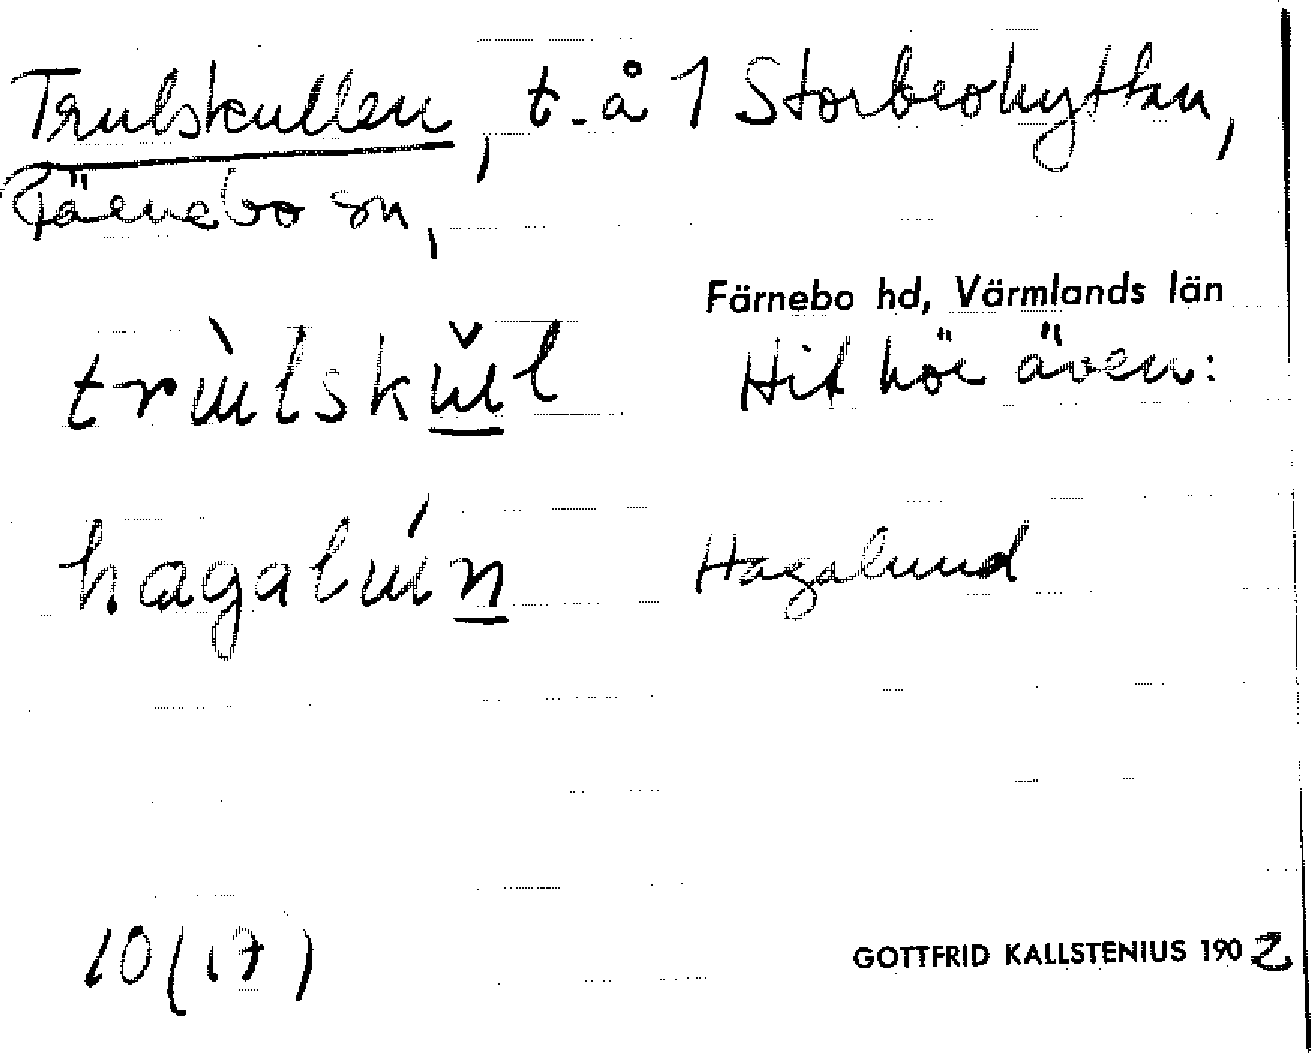 Trulskullen, t. å 1 Storbrohyttan,
Färnebo sn,
Färnebo hd, Värmlands län
trùlskŭl Hit hör även:
hagalún Hagalund
10 (17)
GOTTFRID KALLSTENIUS 1902